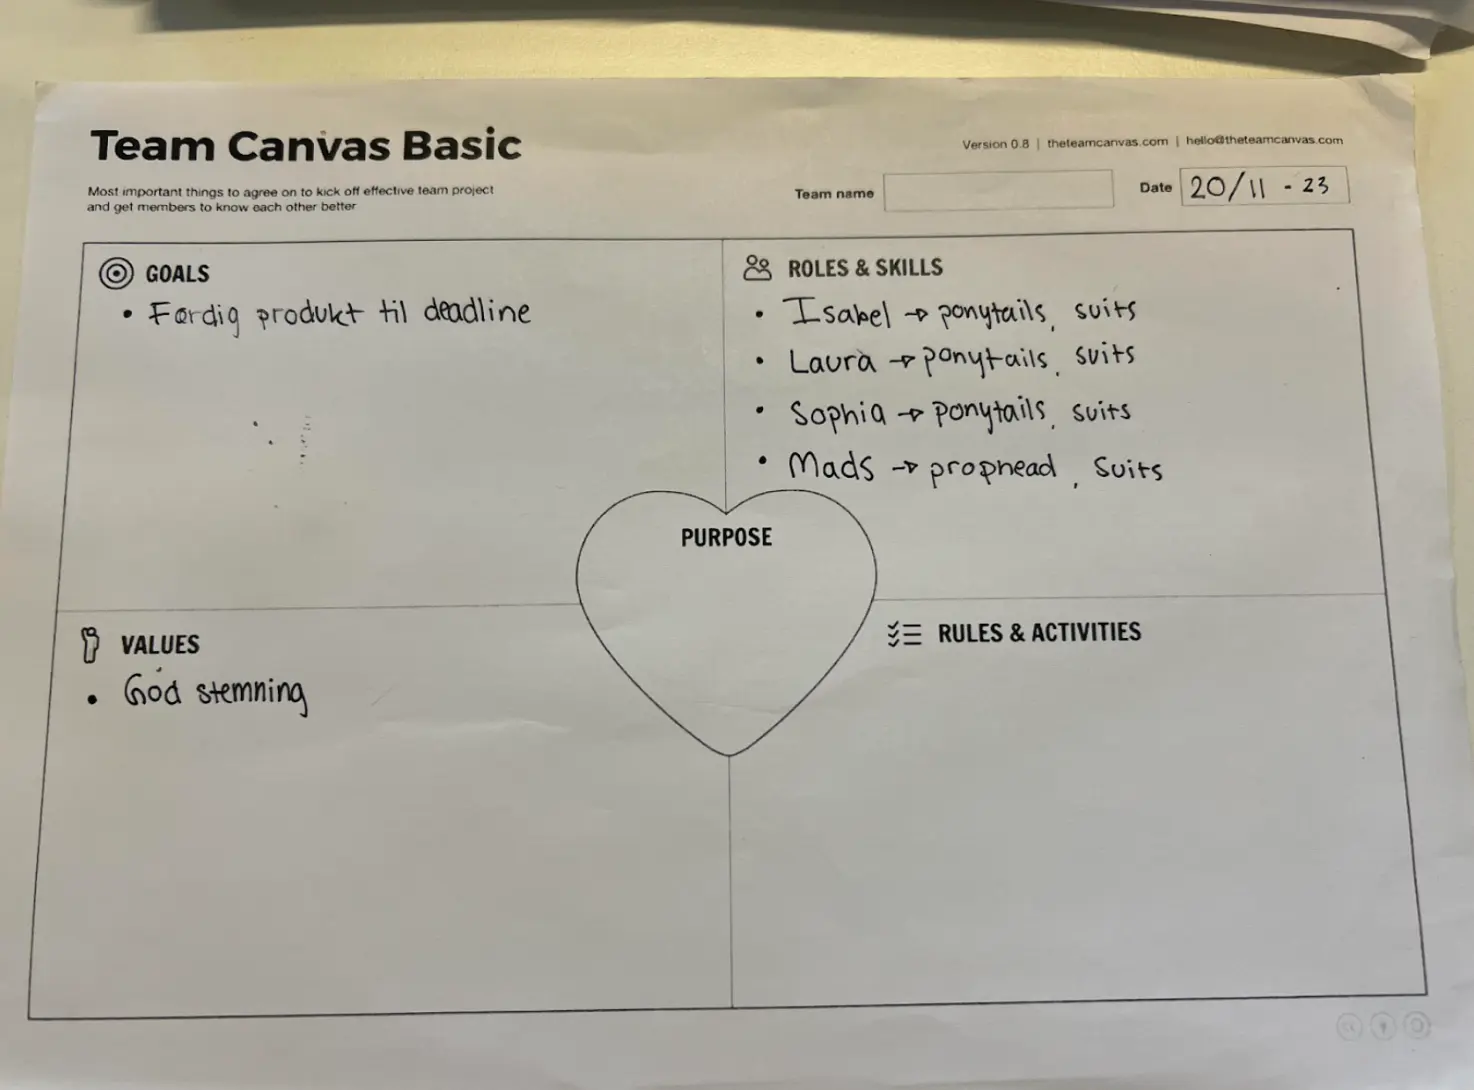 Team Canvas Basic
Most important things to agree on to kick off effective team project
and get members to know each other better
Version 0.8 | theteamcanvas.com | hello@theteamcanvas.com
Team name
Date 20/11 - 23
GOALS
• Færdig produkt til deadline
ROLES & SKILLS
• Isabel → ponytails, suits
• Laura → ponytails, suits
• Sophia → ponytails, suits
• Mads → prophead, suits
PURPOSE
VALUES
• God stemning
RULES & ACTIVITIES